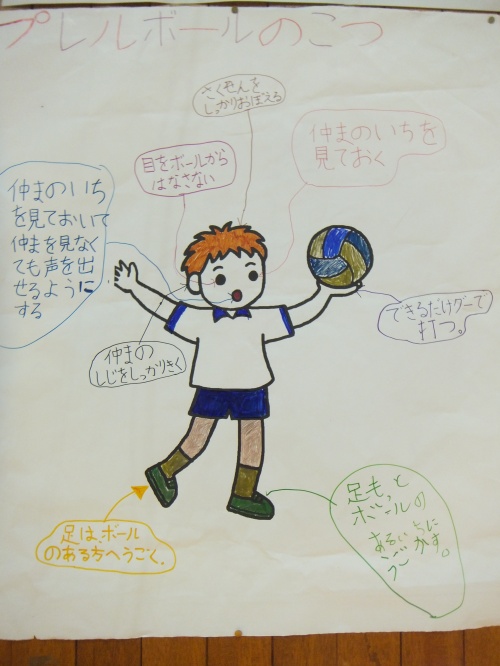 プレルボールのこつ
さくせんを
しっかりおぼえる
仲まのいちを
見ておく
目をボールから
はなさない
仲まのいち
を見ておいて
仲まを見なく
ても声を出
せるように
する
できるだけグーで
打つ。
仲まの
しじをしっかりきく
足もっと
ボールの
あるいちに
うごかす。
足は、ボール
のある方へうごく.